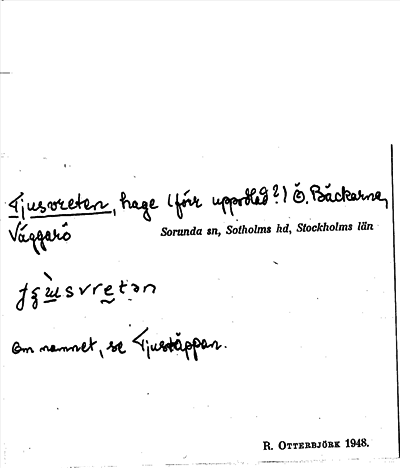 Tjusvreten, hage (förr uppodlad?) Ö. Bäckarna,
Väggarö
Sorunda sn, Sotholms hd, Stockholms län
Om namnet, se Tjustäppan.
R. OTTERBJÖRK 1948.